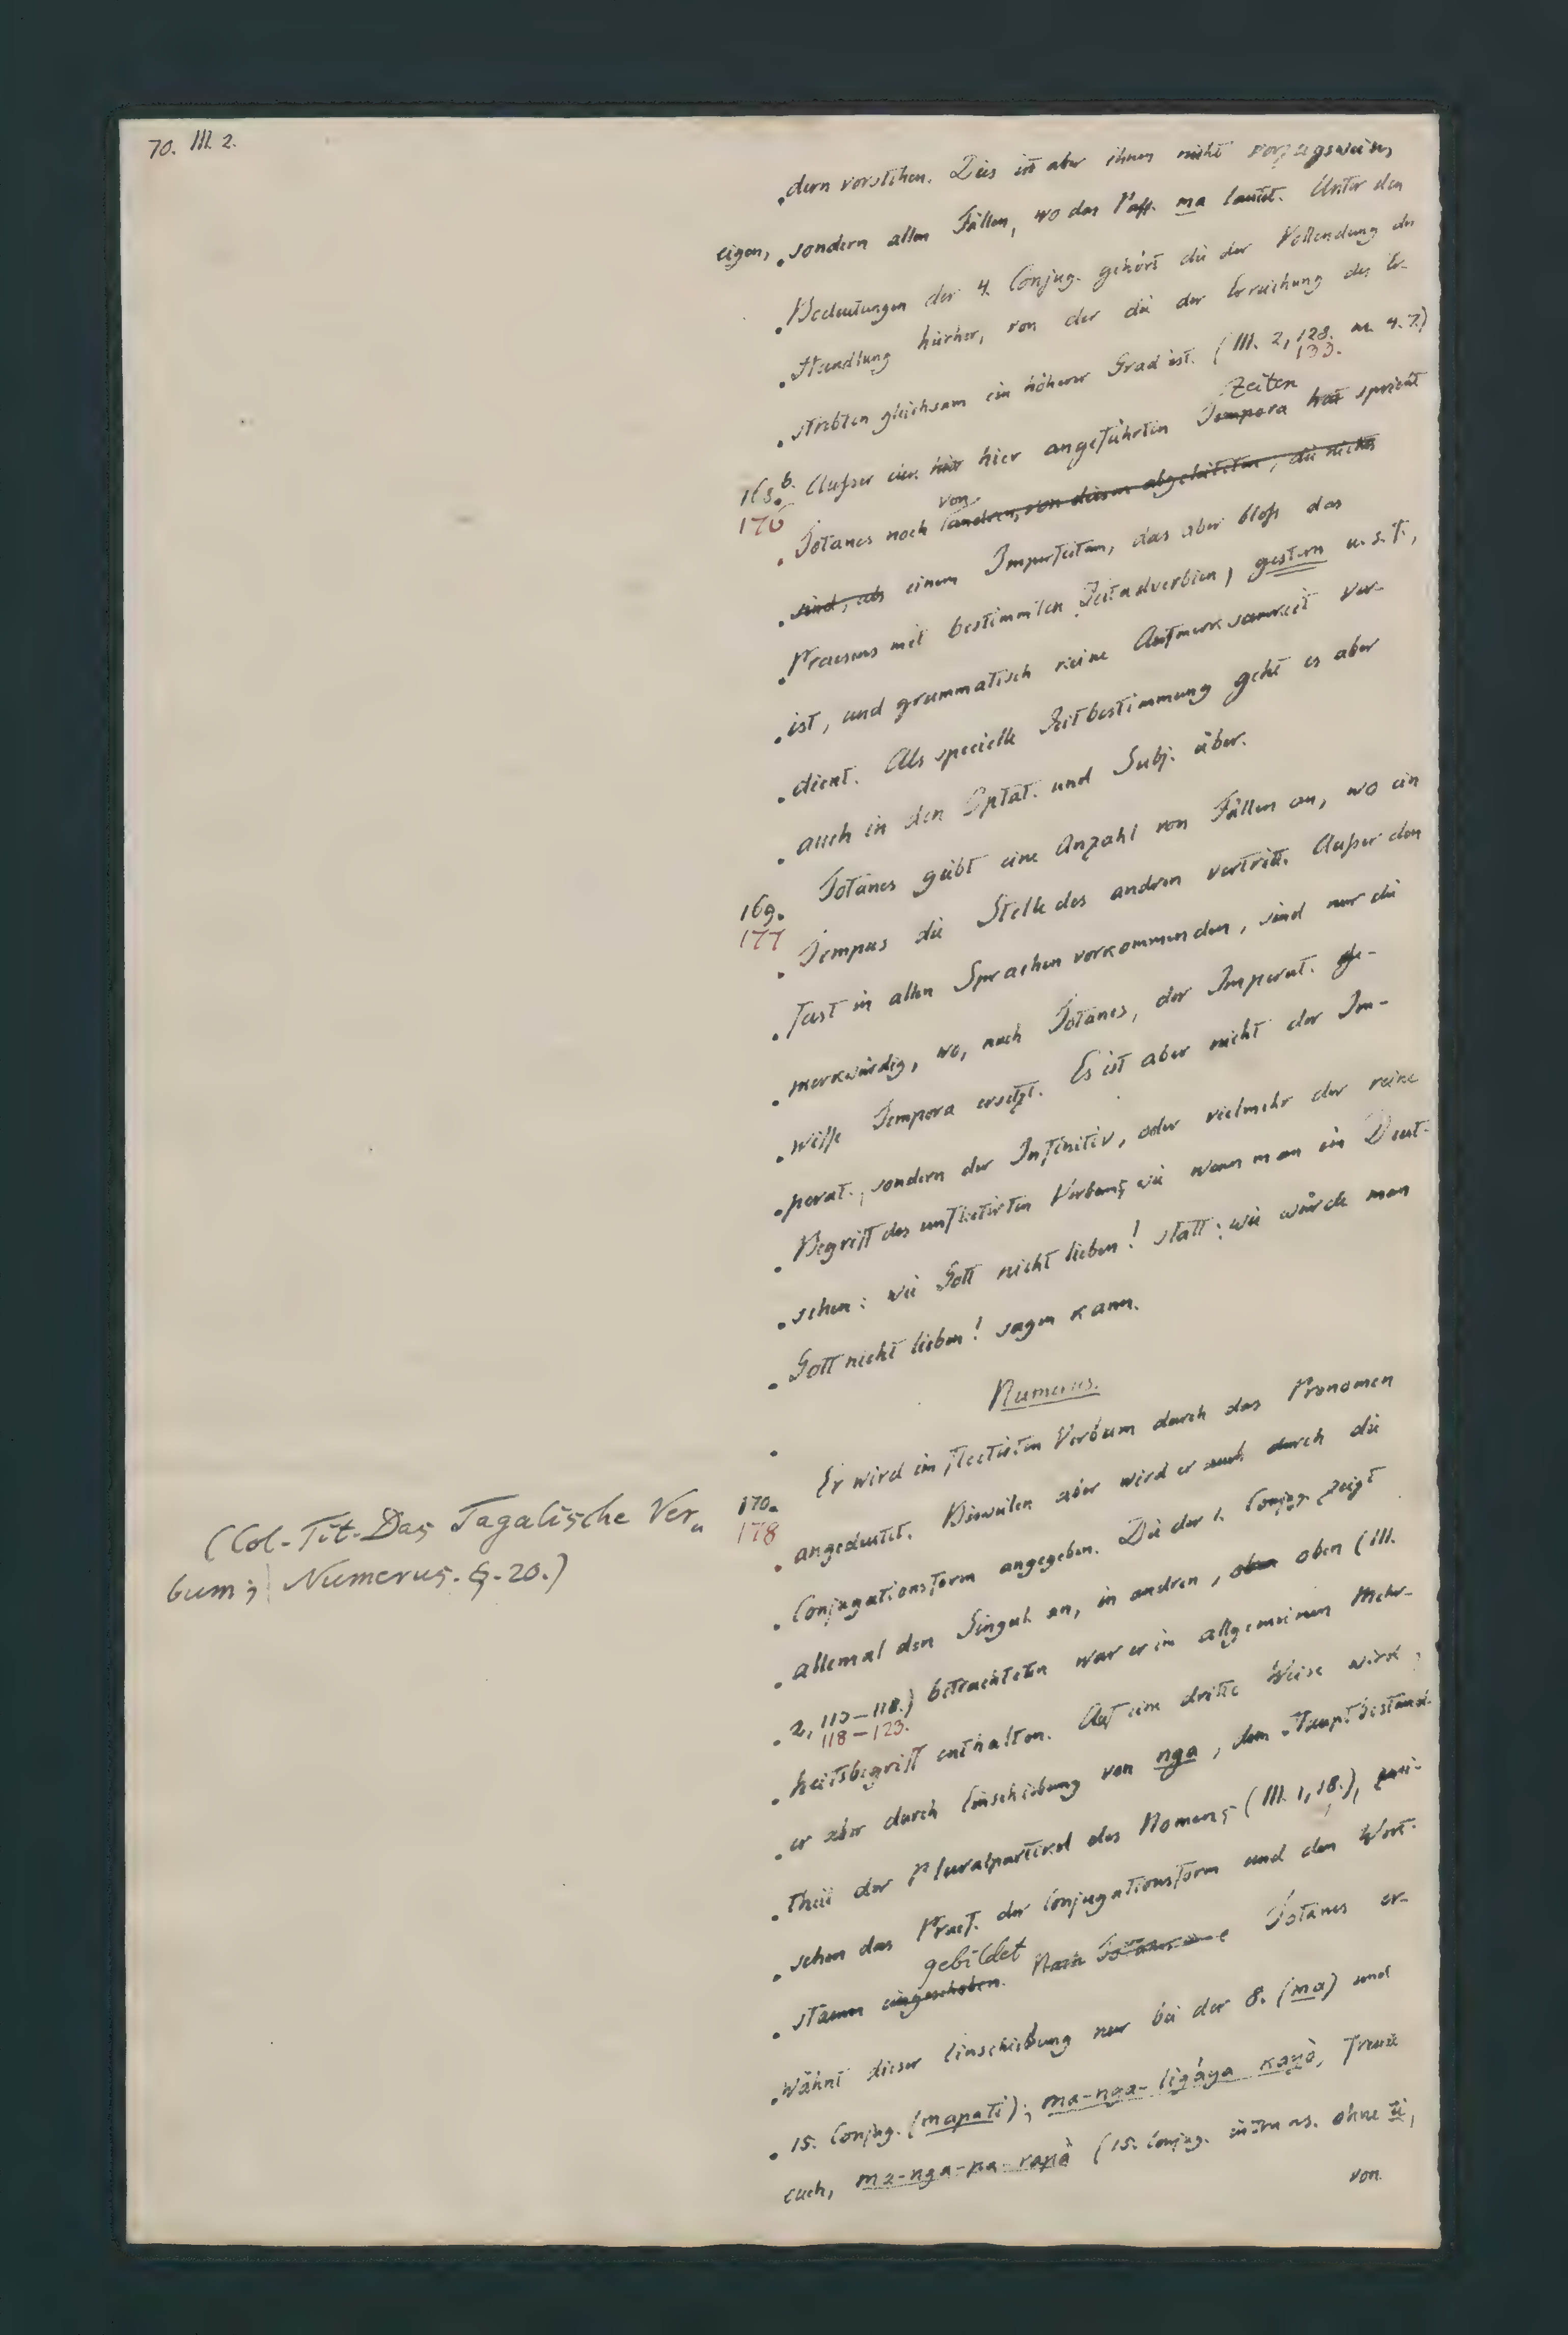 70. III. 2.
dern vorstehen. Dies ist aber ihnen nicht vorzugsweise
eigen, sondern allen Fällen, wo das Paſſ. ma lautet. Unter den
Bedeutungen der 4. Conjug. gehört die der Vollendung der
Handlung hierher, von der die der Erreichung des Er-
strebten gleichsam ein höherer Grad ist. (III. 2, 128. nr. 4. 7.)
133.
Zeiten
168. b. Auſser den hier hier angeführten Tempora hat spricht
176
von
Totanes noch andren, von diesen abgeleiteten, die nichts
sind, als einem Imperfectum, das aber bloſs das
Praesens mit bestimmten Zeitadverbien, gestern u. s. f.,
ist, und grammatisch keine Aufmerksamkeit ver-
dient. Als specielle Zeitbestimmung geht es aber
auch in den Optat. und Subj. über.
169. Totanes giebt eine Anzahl von Fällen an, wo ein
177
Tempus die Stelle des andren vertritt. Auſser den
fast in allen Sprachen vorkommenden, sind nur die
merkwürdig, wo, nach Totanes, der Imperat. ge-
wiſſe Tempora ersetzt. Es ist aber nicht der Im-
perat., sondern der Infinitiv, oder vielmehr der reine
Begriff des unflectirten Verbums, wie wenn man im Deut-
schen: wie Gott nicht lieben! statt: wie würde man
Gott nicht lieben! sagen kann.
Numerus.
170. Er wird im flectirten Verbum durch das Pronomen
178
angedeutet. Bisweilen aber wird er auch durch die
Conjugationsform angegeben. Die der 1. Conjug. zeigt
allemal den Singul. an, in andren, oben oben (III.
2, 113–118.) betrachteten war er im allgemeinen Mehr-
118–123.
heitsbegriff enthalten. Auf eine dritte Weise wird
er aber durch Einschiebung von nga, dem Hauptbestand-
theil der Pluralpartikel des Nomens (III. 1, 18.), zwi-
schen das Praef. der Conjugationsform und den Wort-
gebildet
stamm eingeschoben. Nach Totanes Totanes er-
wähnt dieser Einschiebung nur bei der 8. (ma) und
15. Conjug. (mapati); ma-nga-ligáya kayò, freuet
euch, ma-nga-pa-rapà (15. Conjug. intrans. ohne ti,
von
(Col. Tit. Das Tagalische Ver„
bum; Numerus. §. 20.)